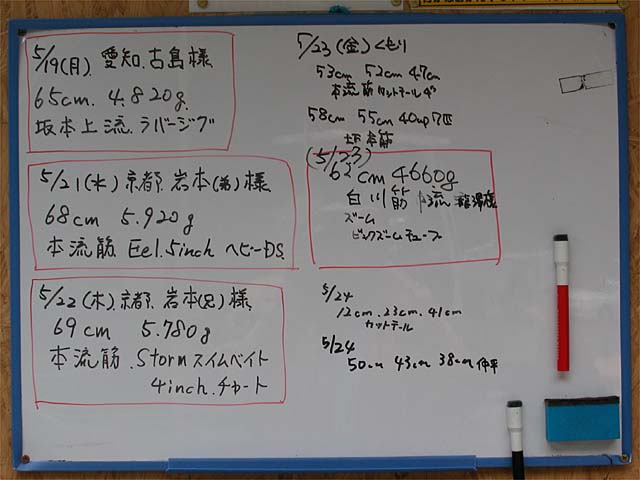 5/19(月). 愛知. 古島様
65cm. 4.820g.
坂本上流. ラバージグ
5/21(水) 京都. 岩本(弟)様
68cm 5.920g
本流筋 Eel.5inch ヘビーDS.
5/22(木). 京都. 岩本(兄)様
69cm 5.780g
本流筋. Storm スイムベイト
4inch. チャート
5/23(金) くもり
53cm 52cm 47cm
本流筋 カットテール
58cm 55cm 40up 7匹
坂本筋
(5/23)
62cm 4660g
白川筋
ズーム
ビッグズームチューブ
5/24
12cm. 23cm. 41cm
カットテール
5/24
50cm 43cm 38cm